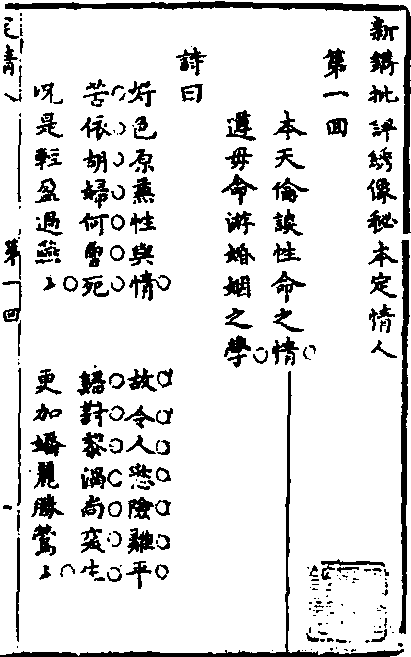 新鐫批評綉像秘本定情人
第一回
本天倫談性命之情
遵母命游婚姻之學
詩曰
好色原兼性與情　故令人慾險難平
苦依胡婦何曾死　歸對黎渦尚突生
况是輕盈過燕〻　更加嬌麗勝鶯〻
第一回